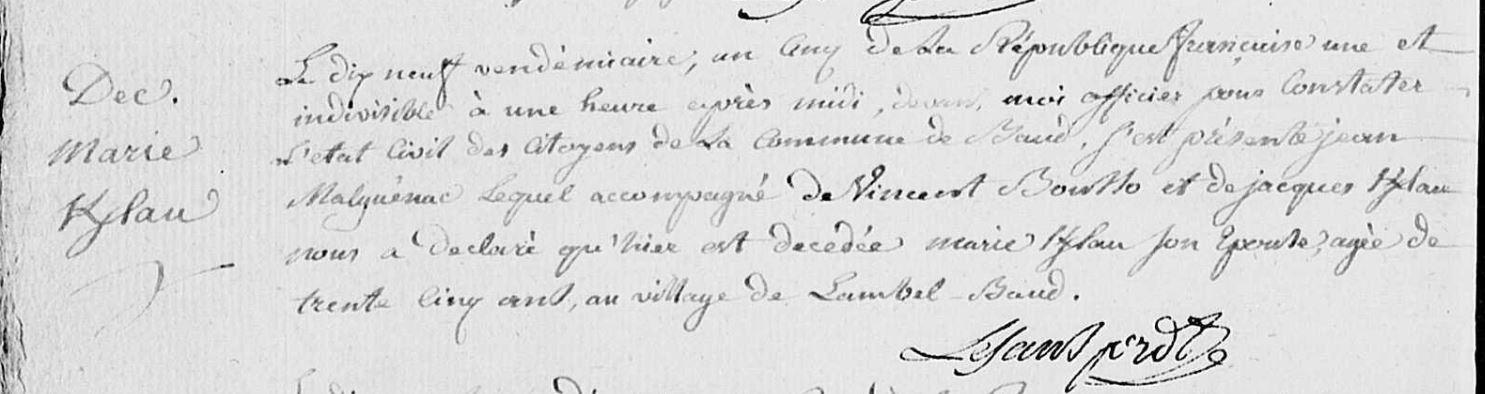 Dec.
Marie
K/lau
Le dix neuf vendémiaire, an Cinq de La République française une et
indivisible à une heure après midi, devant moi officier pour Constater
L'etat Civil des Citoyens de La Commune de Baud, s'est présenté jean
Malguénac Lequel accompagné de Vincent et de jacques K/lau
nous a declaré qu'hier est decedée marie K/lau son Epouse, agée de
trente Cinq ans, au village de Lambel-Baud.